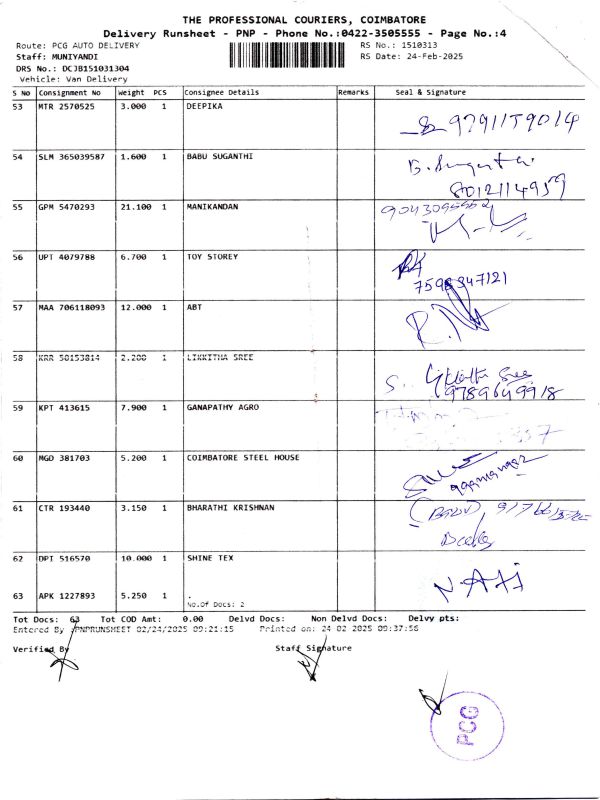 THE PROFESSIONAL COURIERS, COIMBATORE
Delivery Runsheet - PNP - Phone No.:0422-3505555 - Page No.:4
Route: PCG AUTO DELIVERY RS No.: 1510313
Staff: MUNIYANDI RS Date: 24-Feb-2025
DRS No.: DCJB151031304
Vehicle: Van Delivery
S No Consignment No Weight PCS Consignee Details Remarks Seal & Signature
53 MTR 2570525 3.000 1 DEEPIKA
54 SLM 365039587 1.600 1 BABU SUGANTHI
8012114959
55 GPM 5470293 21.100 1 MANIKANDAN
56 UPT 4079788 6.700 1 TOY STOREY
57 MAA 706118093 12.000 1 ABT
58 KRR 50153814 2.200 1 LIKKITHA SREE
S. Likkitha Sree
9789649918
59 KPT 413615 7.900 1 GANAPATHY AGRO
60 MGD 381703 5.200 1 COIMBATORE STEEL HOUSE
61 CTR 193440 3.150 1 BHARATHI KRISHNAN
62 DPI 516570 10.000 1 SHINE TEX
63 APK 1227893 5.250 1 .
No.Of Docs: 2
Tot Docs: 63 Tot COD Amt: 0.00 Delvd Docs: Non Delvd Docs: Delvy pts:
Entered By :PNPRUNSHEET 02/24/2025 09:21:15 Printed on: 24 02 2025 09:37:56
Verified By Staff Signature
PCG